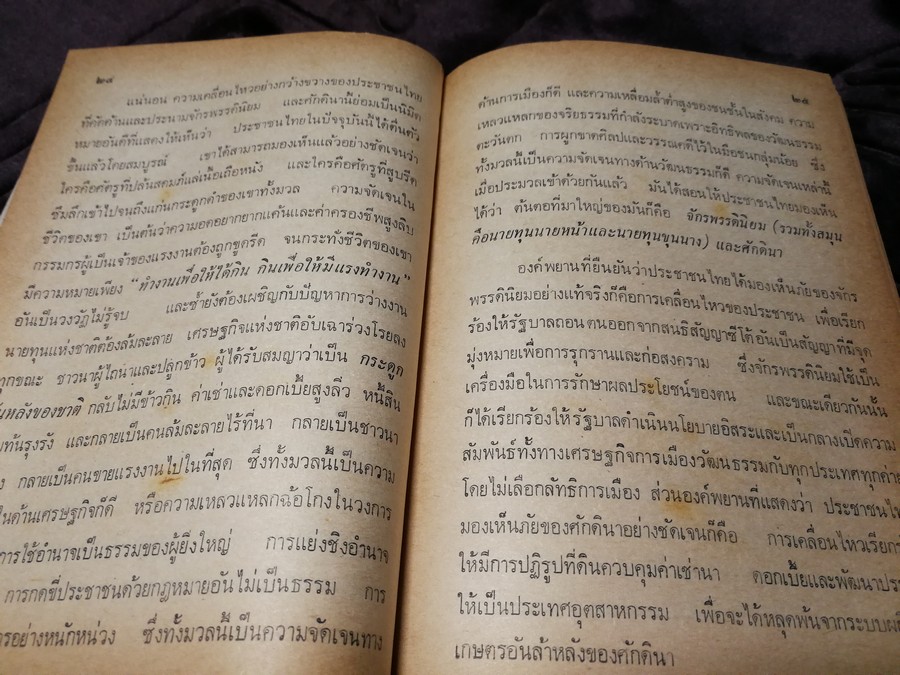 ๒๔
แน่นอน ความเคลื่อนไหวอย่างกว้างขวางของประชาชนไทย
ที่คัดค้านและประนามจักรพรรดินิยม และศักดินานี้ย่อมเป็นนิมิต
หมายอันดีที่แสดงให้เห็นว่า ประชาชนไทยในปัจจุบันนี้ได้ตื่นตัว
ขึ้นแล้วโดยสมบูรณ์ เขาได้สามารถมองเห็นแล้วอย่างชัดเจนว่า
ใครคือศัตรูที่ปล้นสดมภ์แล่เนื้อเถือหนัง และใครคือศัตรูที่สูบรีด
ซึมลึกเข้าไปจนถึงแก่นกระดูกดำของเขาทั้งมวล ความจัดเจนใน
ชีวิตของเขา เป็นต้นว่าความอดอยากยากแค้นและค่าครองชีพสูงลิบ
กรรมกรผู้เป็นเจ้าของแรงงานต้องถูกขูดรีด จนกระทั่งชีวิตของเขา
มีความหมายเพียง "ทำงานเพื่อให้ได้กิน กินเพื่อให้มีแรงทำงาน"
อันเป็นวงวัฏไม่รู้จบ และซ้ำยังต้องเผชิญกับปัญหาการว่างงาน
นายทุนแห่งชาติต้องล้มละลาย เศรษฐกิจแห่งชาติอับเฉาร่วงโรยลง
ทุกขณะ ชาวนาผู้ไถนาและปลูกข้าว ผู้ได้รับสมญาว่าเป็น กระดูก
สันหลังของชาติ กลับไม่มีข้าวกิน ค่าเช่าและดอกเบี้ยสูงลิ่ว หนี้สิน
ท้นรุงรัง และกลายเป็นคนล้มละลายไร้ที่นา กลายเป็นชาวนา
กลายเป็นคนขายแรงงานไปในที่สุด ซึ่งทั้งมวลนี้เป็นความ
ในด้านเศรษฐกิจก็ดี หรือความเหลวแหลกฉ้อโกงในวงการ
การใช้อำนาจเป็นธรรมของผู้ยิ่งใหญ่ การแย่งชิงอำนาจ
การกดขี่ประชาชนด้วยกฎหมายอันไม่เป็นธรรม การ
อย่างหนักหน่วง ซึ่งทั้งมวลนี้เป็นความจัดเจนทาง
๒๕
ด้านการเมืองก็ดี และความเหลื่อมล้ำต่ำสูงของชนชั้นในสังคม ความ
เหลวแหลกของจริยธรรมที่กำลังระบาดเพราะอิทธิพลของวัฒนธรรม
ตะวันตก การผูกขาดศิลปและวรรณคดีไว้ในมือชนกลุ่มน้อย ซึ่ง
ทั้งมวลนี้เป็นความจัดเจนทางด้านวัฒนธรรมก็ดี ความจัดเจนเหล่านี้
เมื่อประมวลเข้าด้วยกันแล้ว มันได้สอนให้ประชาชนไทยมองเห็น
ได้ว่า ต้นตอที่มาใหญ่ของมันก็คือ จักรพรรดินิยม (รวมทั้งสมุน
คือนายทุนนายหน้าและนายทุนขุนนาง) และศักดินา
องค์พยานที่ยืนยันว่าประชาชนไทยได้มองเห็นภัยของจักร
พรรดินิยมอย่างแท้จริงก็คือการเคลื่อนไหวของประชาชน เพื่อเรียก
ร้องให้รัฐบาลถอนตนออกจากสนธิสัญญาซีโต้อันเป็นสัญญาที่มีจุด
มุ่งหมายเพื่อการรุกรานและก่อสงคราม ซึ่งจักรพรรดินิยมใช้เป็น
เครื่องมือในการรักษาผลประโยชน์ของตน และขณะเดียวกันนั้น
ก็ได้เรียกร้องให้รัฐบาลดำเนินนโยบายอิสระและเป็นกลางเปิดความ
สัมพันธ์ทั้งทางเศรษฐกิจการเมืองวัฒนธรรมกับทุกประเทศทุกค่าย
โดยไม่เลือกลัทธิการเมือง ส่วนองค์พยานที่แสดงว่า ประชาชนไท
มองเห็นภัยของศักดินาอย่างชัดเจนก็คือ การเคลื่อนไหวเรียก
ให้มีการปฏิรูปที่ดินควบคุมค่าเช่านา ดอกเบี้ยและพัฒนาประ
ให้เป็นประเทศอุตสาหกรรม เพื่อจะได้หลุดพ้นจากระบบผ
เกษตรอันล้าหลังของศักดินา